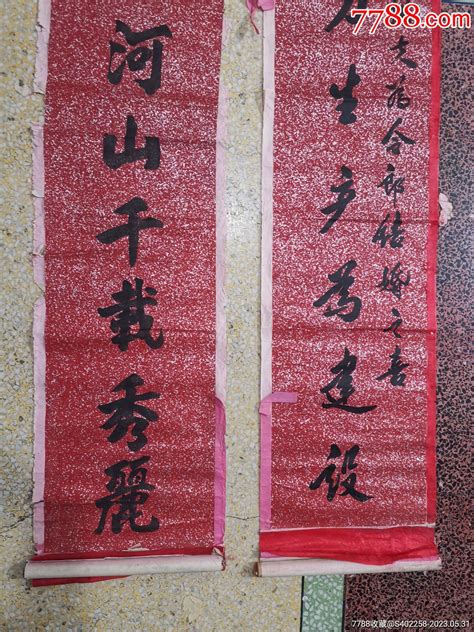 7788.com
夫為令郎結婚之喜
生产為建设
河山千載秀麗
7788收藏@S402258-2023.05.31